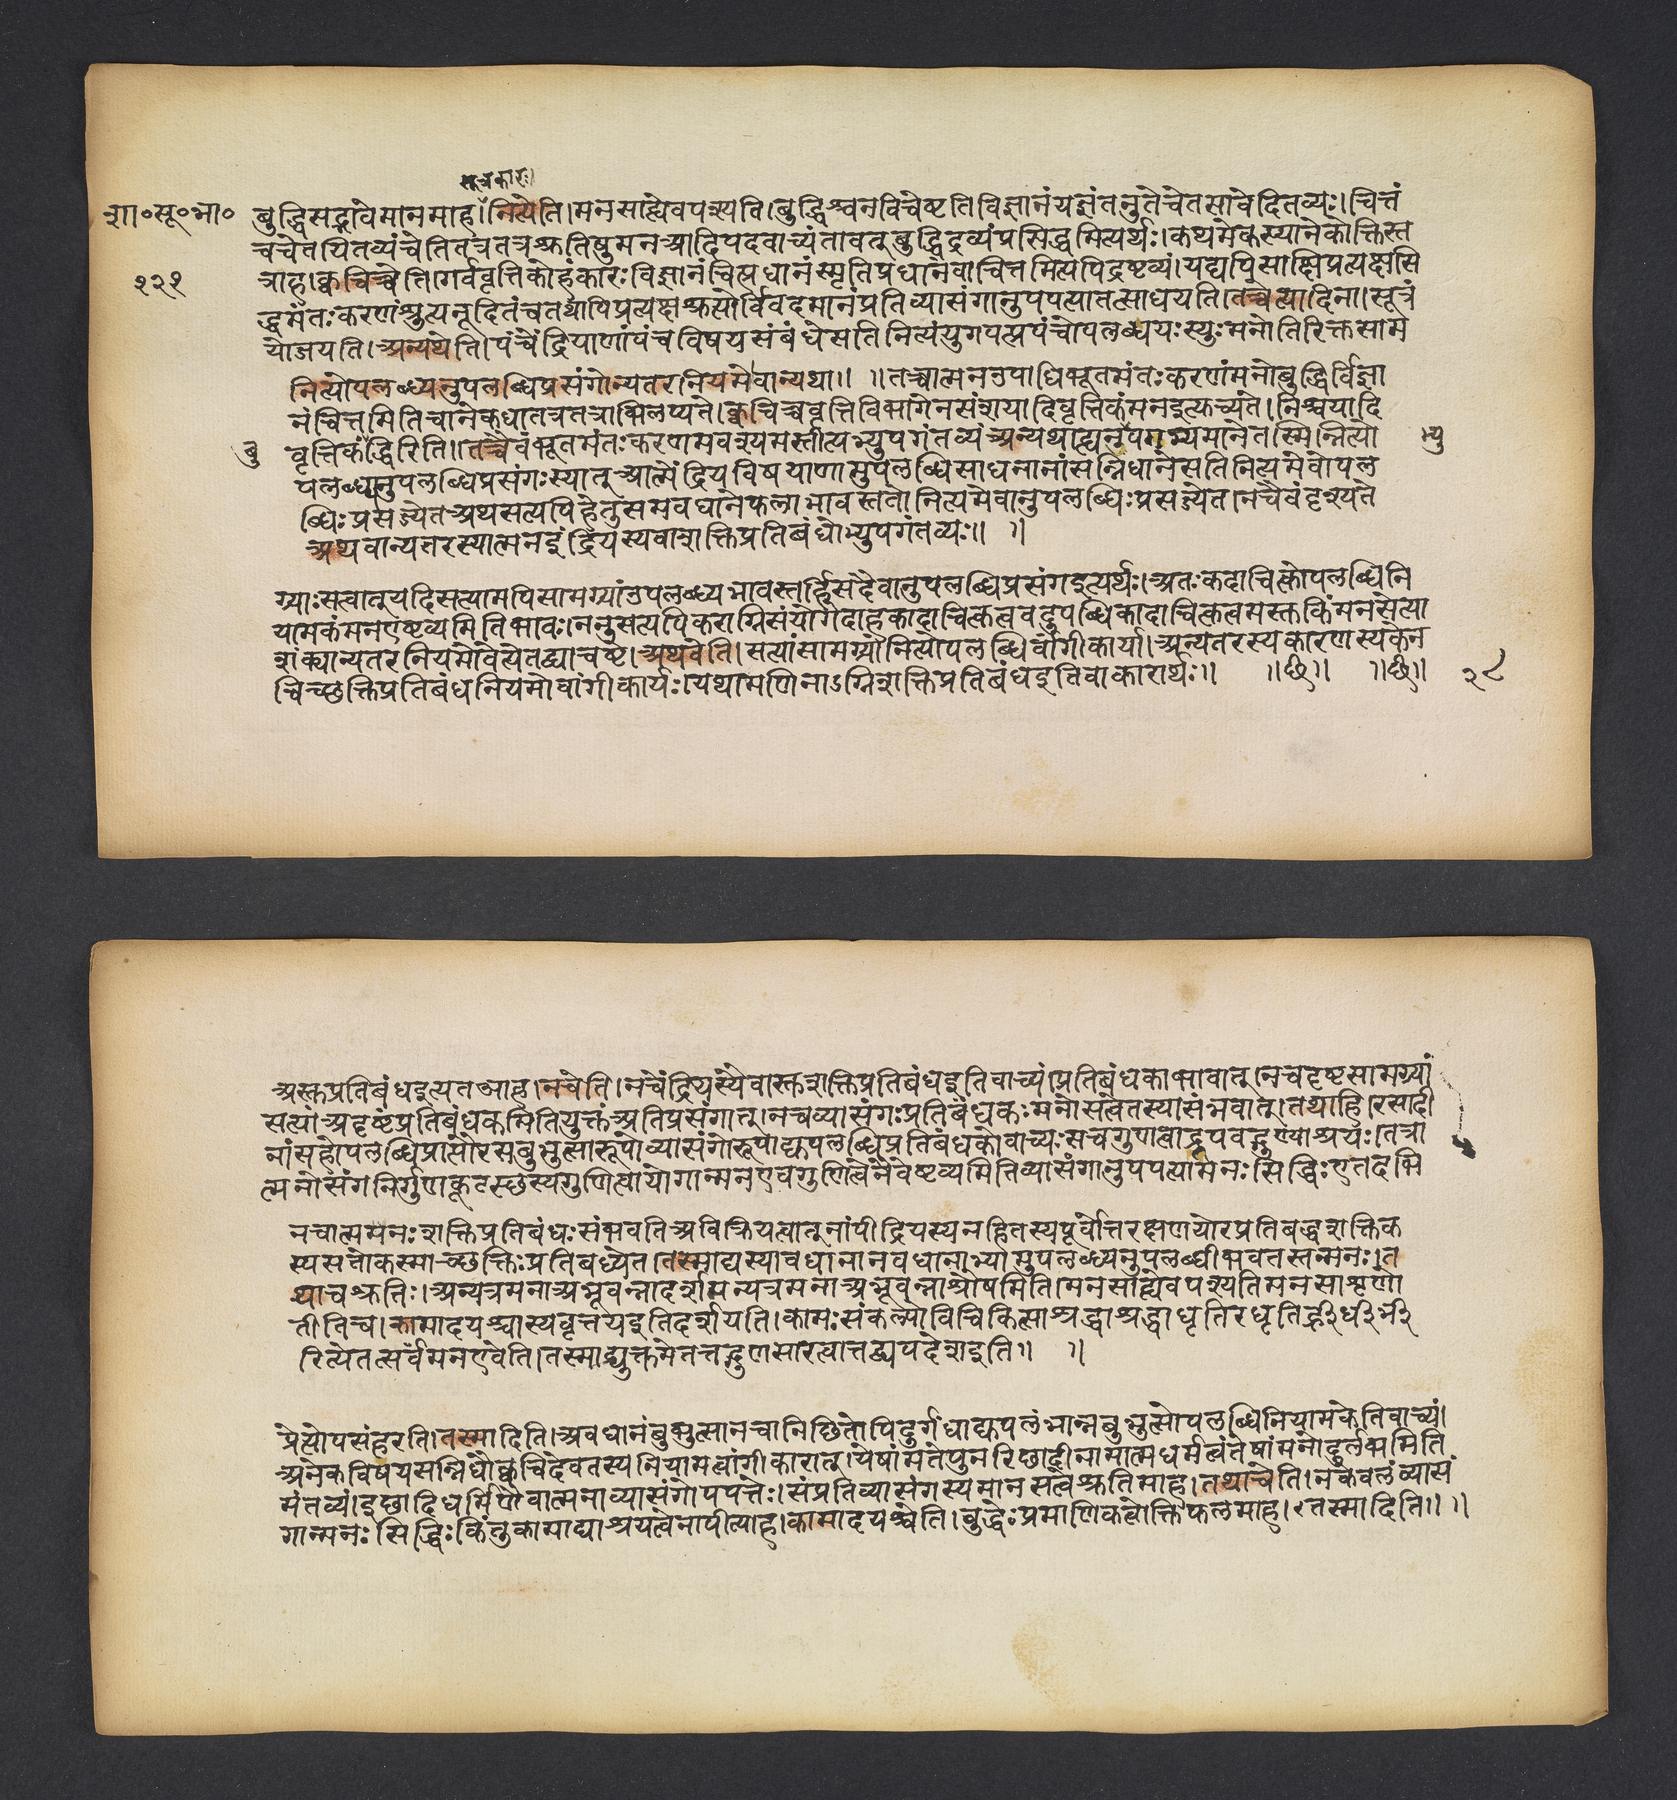 सूत्रकारः
शा०सू०भा० बुद्धिसद्भावेमानमाह।नित्येति।मनसाह्येवपश्यति।बुद्धिश्चनविचेष्टतिविज्ञानंयज्ञंतनुतेचेतसावेदितव्यः।चित्तं
चचेतयितव्यंचेतितत्रतत्रश्रुतिषुमनआदिपदवाच्यंतावत्बुद्धिद्रव्यंप्रसिद्धमित्यर्थः।कथमेकस्यानेकोक्तिस्त
२२१ त्राह।क्वचिच्चेति।गर्ववृत्तिकोहंकारः विज्ञानंचित्प्रधानंस्मृतिप्रधानंवाचित्तमित्यपिद्रष्टव्यं।यद्यपिसाक्षिप्रत्यक्षसि
द्धमंतःकरणंश्रुत्यनूदितंचतथापिप्रत्यक्षश्रुत्योर्विवदमानंप्रतिव्यासंगानुपपत्यातत्साधयति।तच्चेत्यादिना।सूत्रं
योजयति।अन्यथेति।पंचेंद्रियाणांपंचविषयसंबंधेसतिनित्यंयुगपत्पंचोपलब्धयःस्युःमनोतिरिक्तसाम
नित्योपलब्ध्यनुपलब्धिप्रसंगोन्यतरनियमोवान्यथा॥ ॥तच्चात्मनउपाधिभूतमंतःकरणंमनोबुद्धिर्विज्ञा
नंचित्तमितिचानेकधातत्रतत्राभिलप्यते।क्वचिच्चवृत्तिविभागेनसंशयादिवृत्तिकंमनइत्युच्यते।निश्चयादि
बु वृत्तिकंद्धिरिति।तच्चैवंभूतमंतःकरणमवश्यमस्तीत्यभ्युपगंतव्यंअन्यथाह्यनुपगम्यमानेतस्मिन्नित्यो भ्यु
पलब्ध्यनुपलब्धिप्रसंगःस्यात्आत्मेंद्रियविषयाणामुपलब्धिसाधनानांसन्निधानेसतिनित्यमेवोपल
ब्धिःप्रसज्येतअथसत्यपिहेतुसमवधानेफलाभावस्ततोनित्यमेवानुपलब्धिःप्रसज्येत।नचैवंदृश्यते
अथवान्यतरस्यात्मनइंद्रियस्यवाशक्तिप्रतिबंधोभ्युपगंतव्यः॥ ॥
ग्र्याःसत्वात्यदिसत्यामपिसामग्र्यांउपलब्ध्यभावस्तर्हिसदैवानुपलब्धिप्रसंगइत्यर्थः।अतःकदाचित्कोपलब्धिनि
यामकंमनएष्टव्यमितिभावः।ननुसत्यपिकराग्निसंयोगेदाहकादाचित्कत्ववदुपब्धिकादाचित्कत्वमस्तुकिंमनसेत्या
शंक्यान्यतरनियमोवेत्येतद्व्याचष्टे।अथवेति।सत्यांसामग्र्यांनित्योपलब्धिर्वांगीकार्या।अन्यतरस्यकारणस्यकेन
चिच्छक्तिप्रतिबंधनियमोवांगीकार्यः।यथामणिनाऽग्निशक्तिप्रतिबंधइतिवाकारार्थः॥ ॥छ॥ ॥छ॥ २८
अस्तुप्रतिबंधइत्यतआह।नचेति।नचेंद्रियस्यैवास्तुशक्तिप्रतिबंधइतिवाच्यं।प्रतिबंधकाभावात्।नचदृष्टसामग्र्यां
सत्यांअदृष्टंप्रतिबंधकमितियुक्तंअतिप्रसंगात्।नचव्यासंगःप्रतिबंधकःमनोसत्वेतस्यासंभवात्।तथाहि।रसादी
नांसहोपलब्धिप्राप्तौरसबुभुत्सारूपोव्यासंगोरूपाद्युपलब्धिप्रतिबंधकोवाच्यःसचगुणत्वाद्रूपवद्गुण्याश्रयः।तत्रा
त्मनोसंगनिर्गुणकूटस्छस्यगुणित्वायोगान्मनएवगुणित्वेनैवेष्टव्यमितिव्यासंगानुपपत्यामनःसिद्धिःएतदभि
नचात्ममनःशक्तिप्रतिबंधःसंभवतिअविक्रियत्वात्नापींद्रियस्यनहितस्यपूर्वोत्तरक्षणयोरप्रतिबद्धशक्तिक
स्यसतोकस्माच्छक्तिःप्रतिबध्येत।तस्माद्यस्यावधानानवधानाभ्यामुपलब्ध्यनुपलब्धीभवतस्तन्मनः।त
थाचश्रुतिः।अन्यत्रमनाअभूवंनादर्शमन्यत्रमनाअभूवंनाश्रोषमिति।मनसाह्येवपश्यतिमनसाशृणो
तीतिच।कामादयश्चास्यवृत्तयइतिदर्शयति।कामःसंकल्पोविचिकित्साश्रद्धाश्रद्धाधृतिरधृतिर्ह्री३र्धी३र्भी३
रित्येतत्सर्वंमनएवेति।तस्माद्युक्तमेतत्तद्गुणसारत्वात्तद्व्यपदेशइति॥ ॥
प्रेत्योपसंहरति।तस्मादिति।अवधानंबुभुत्सानचानिछितोपिदुर्गंधाद्युपलंभान्नबुभुत्सोपलब्धिनियामकेतिवाच्यं।
अनेकविषयसन्निधौक्वचिदेवतस्यनियामत्वांगीकारात्।येषांमतेपुनरिछादीनामात्मधर्मत्वंतेषांमनोदुर्लभमिति
मंतव्यं।इछादिधर्मिणैवात्मनाव्यासंगोपपत्तेः।संप्रतिव्यासंगस्यमानसत्वेश्रुतिमाह।तथाचेति।नकेवलंव्यासं
गान्मनःसिद्धिःकिंतुकामाद्याश्रयत्वेनापीत्याह।कामादयश्चेति।बुद्धेःप्रमाणिकत्वोक्तिफलमाह।तस्मादिति॥ ॥